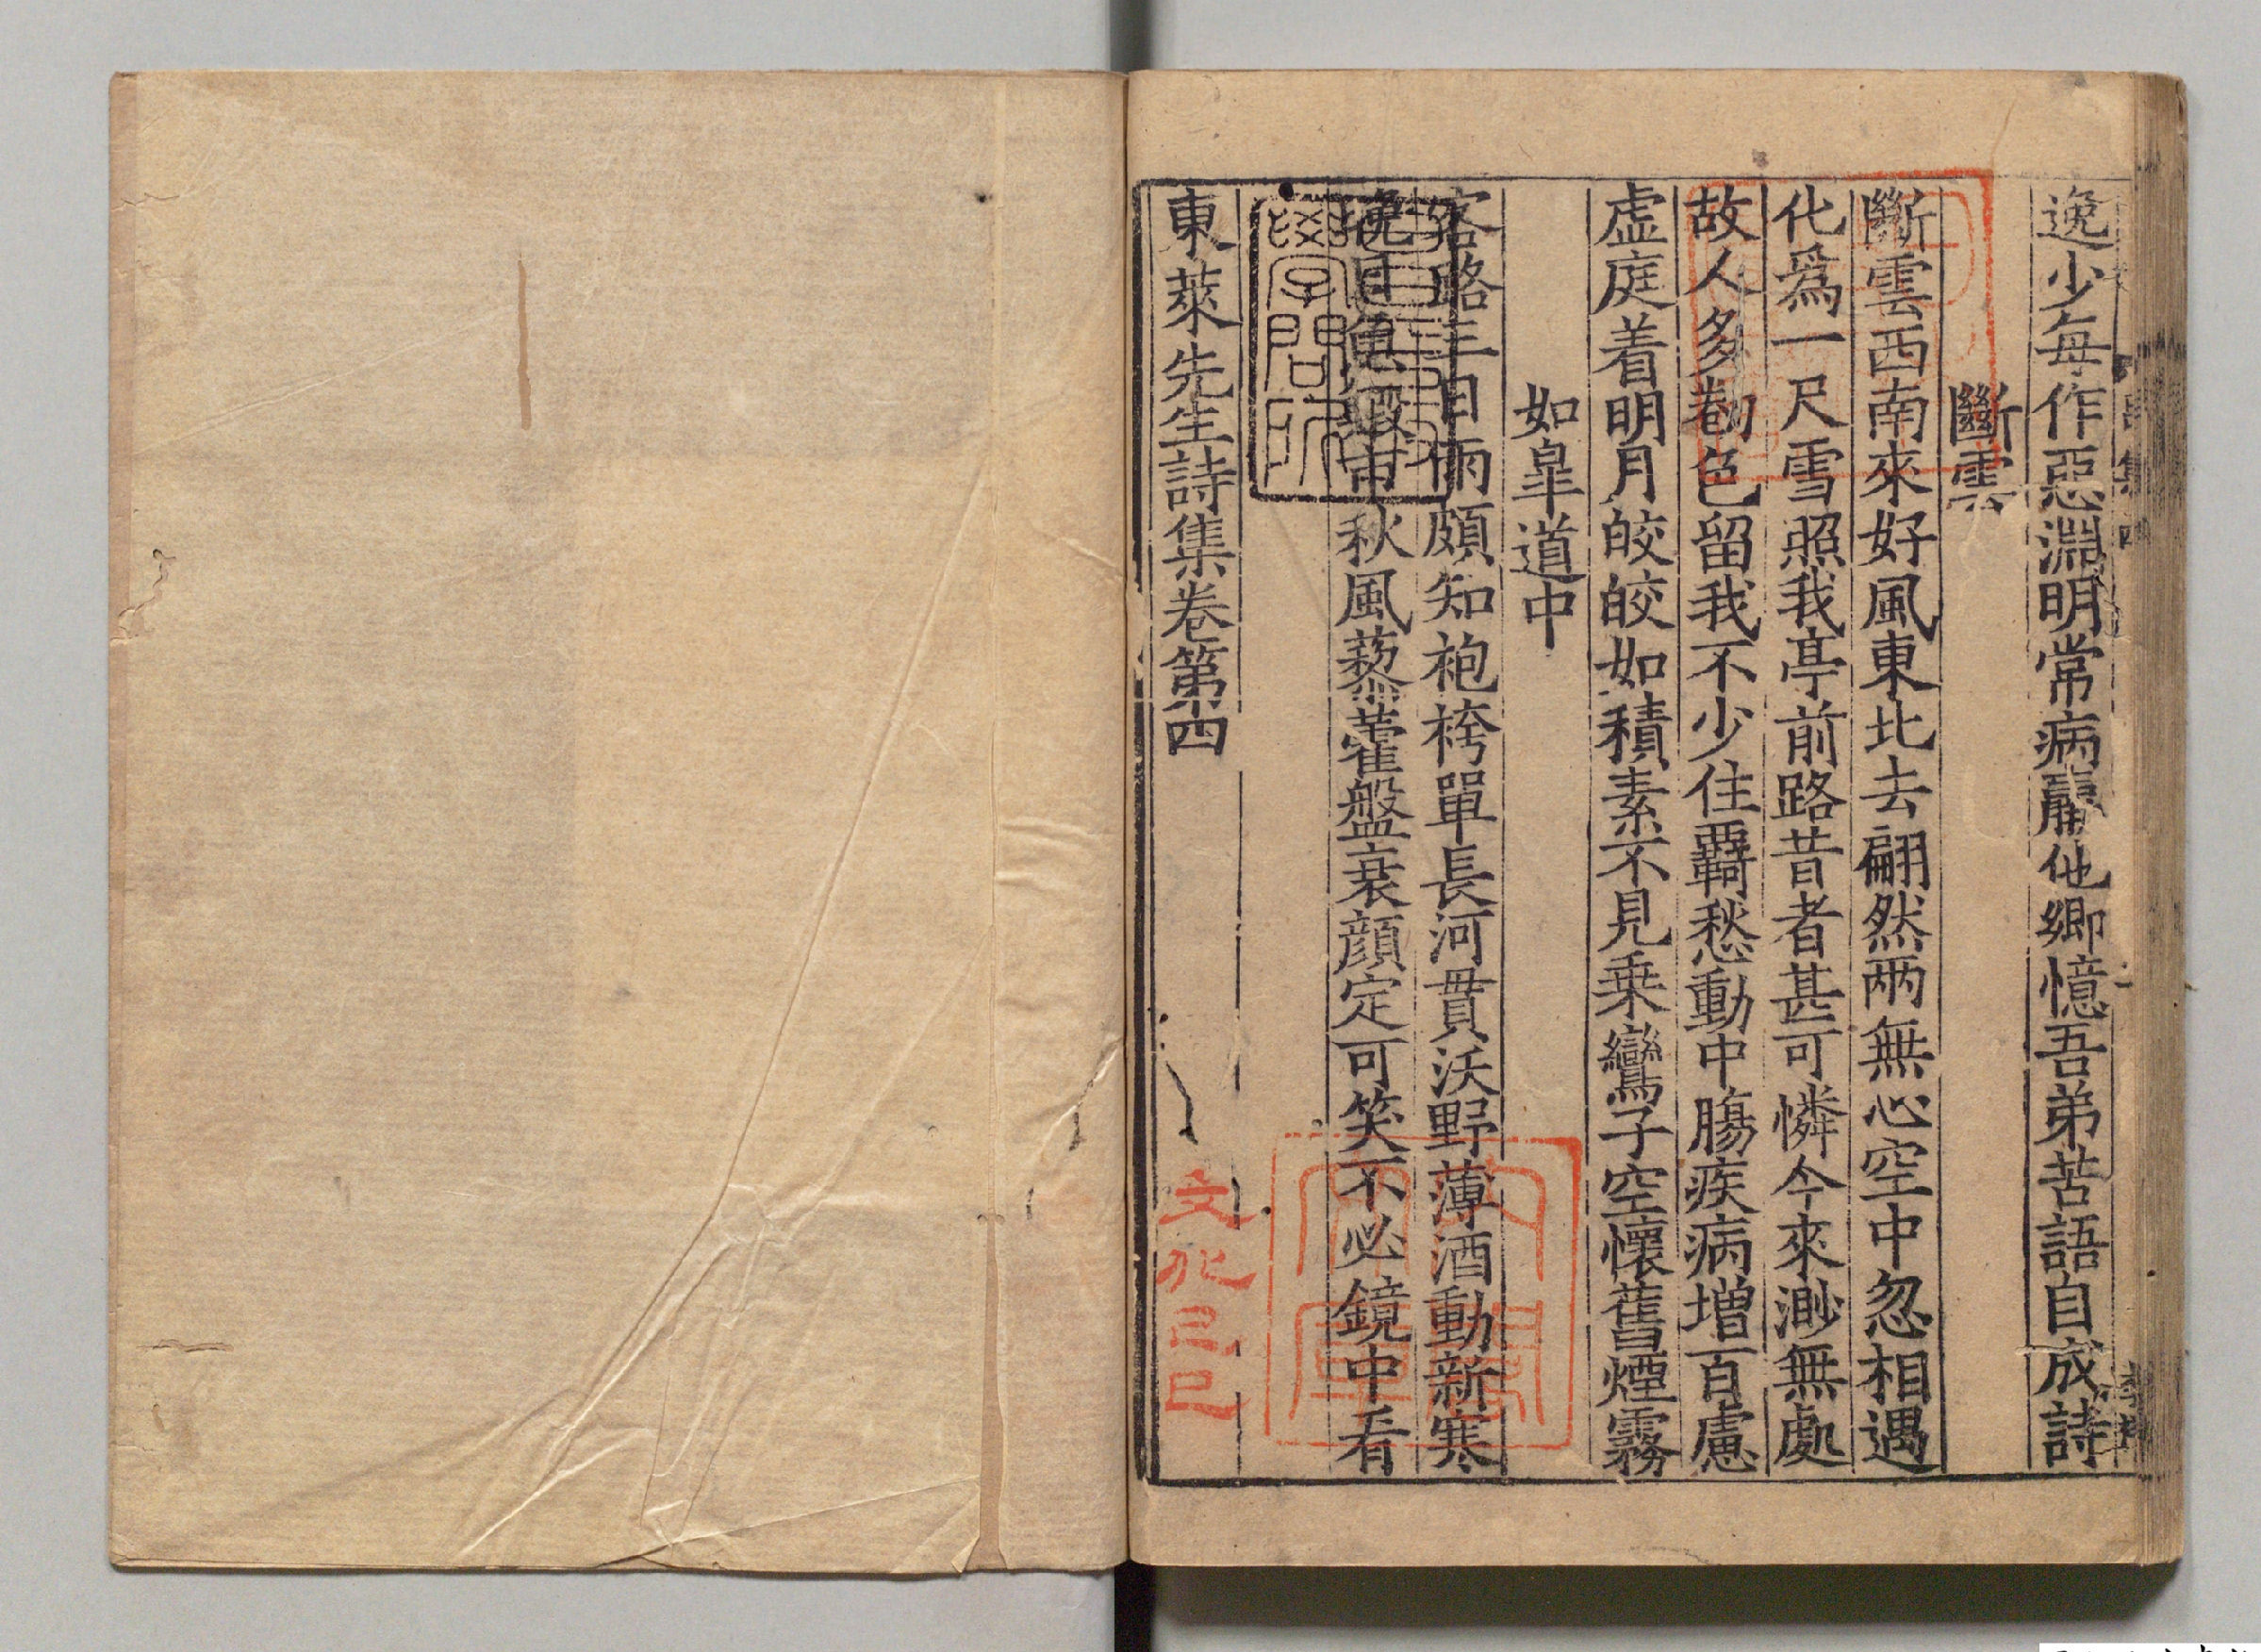 逸少每作惡淵明常病羸他鄉憶吾弟苦語自成詩
斷雲
斷雲西南來好風東北去翩然兩無心空中忽相遇
化爲一尺雪照我亭前路昔者甚可憐今來渺無處
故人多勸色留我不少住覊愁動中腸疾病增百慮
虚庭着明月皎皎如積素不見乗鸞子空懷舊煙霧
如皐道中
客路三日雨頗知袍袴單長河貫沃野薄酒動新寒
晚日魚蝦市秋風藜藿盤衰顔定可笑不必鏡中看
東萊先生詩集卷第四
文化己巳